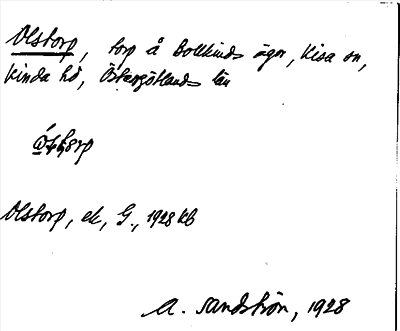 Olstorp, torp å Bollkinds ägor, Kisa sn,
Kinda hd, Östergötlands län
Olstorp, ek, G., 1928 kb
A. Sandström, 1928